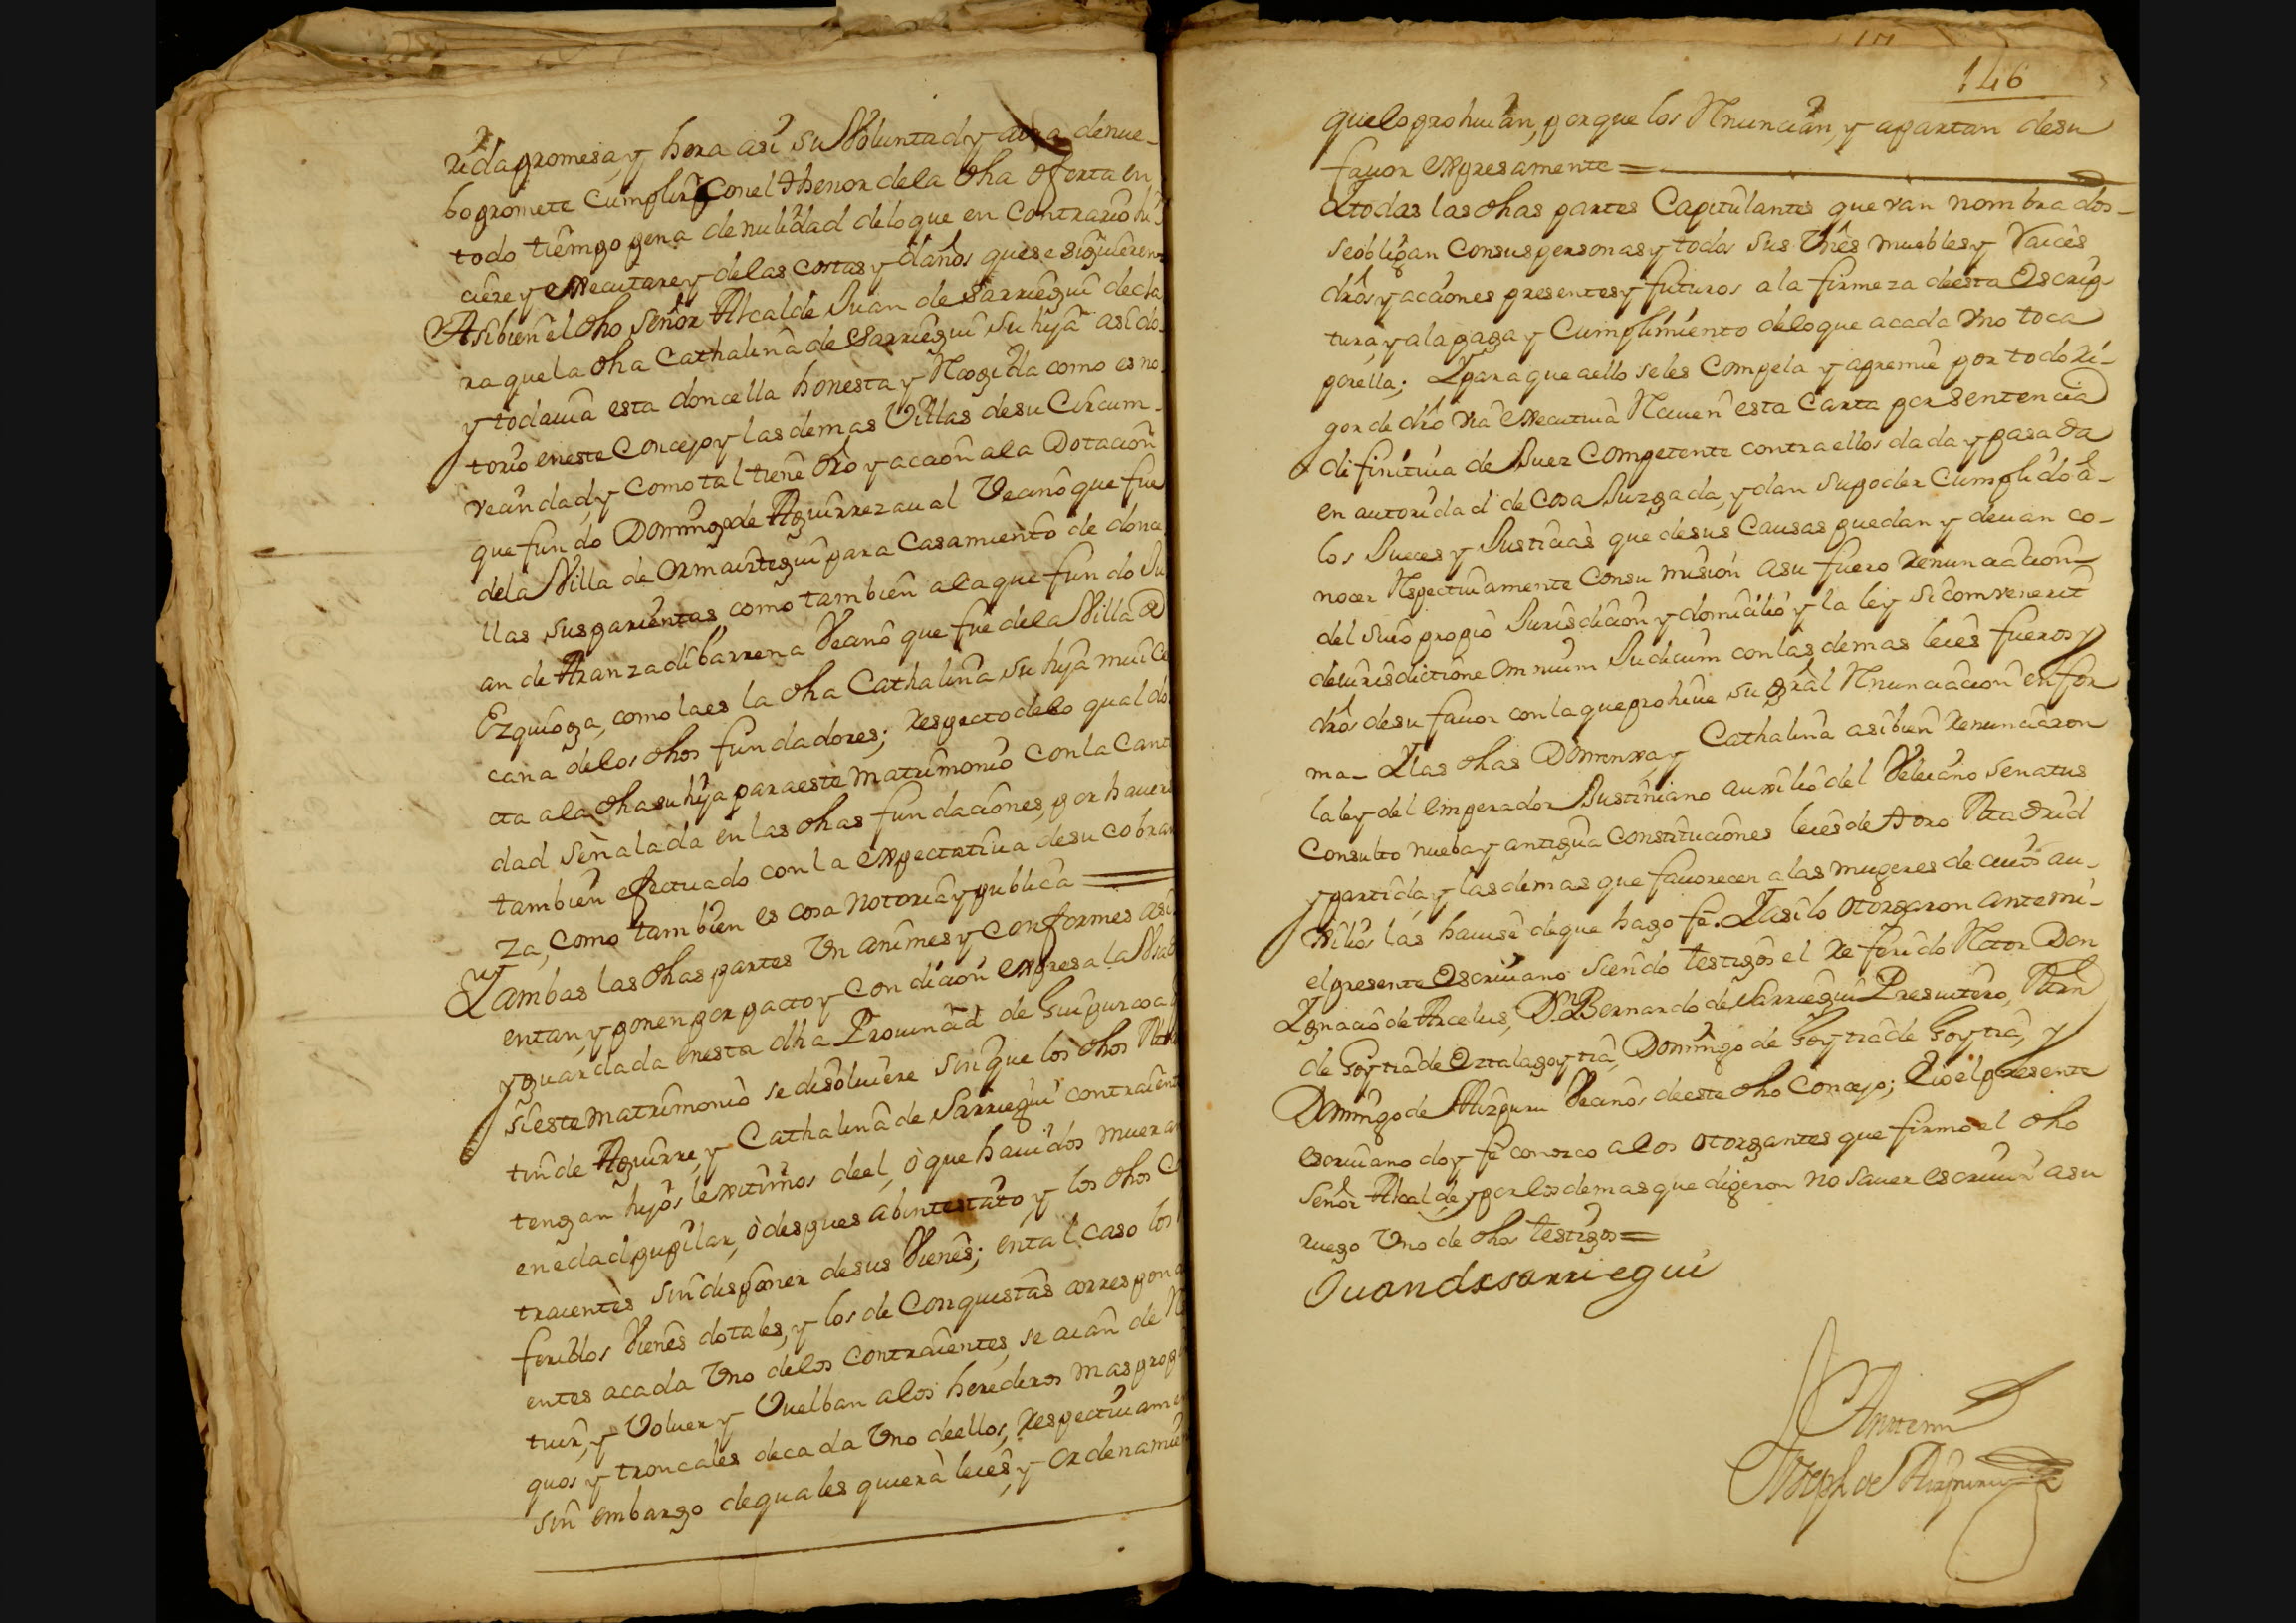 rida promesa, y hera asi su Voluntad, y aora denue-
bo promete Cumplir con el thenor dela dha oferta en
todo tiempo pena de nulidad delo que en Contrario hi
ciere y executare, y delas costas y daños que se siguieren
Asi bien el dho Señor Alcalde Juan de Sarriegui decla
ra que la dha Cathalina de Sarriegui su hija asido
y todavia esta doncella honesta y Recogida como es no
torio eneste Concejo y las demas Villas desu Circum-
vecindad, y Como tal tiene dro y accion ala Dotacion
que fundo Domingo de Aguirrezaual Vecino que fue
dela Villa de Ormaiztegui para Casamiento de donce
llas sus parientas, como tambien ala que fundo Ju
an de Aranzadibarrena Vecino que fue dela Villa de
Ezquioga, como la es la dha Cathalina su hija mui ce
cana delos dhos fundadores; respecto delo qual do
cta ala dha su hija para este matrimonio Con la Canti
dad señalada en las dhas fundaciones, por haverse
tambien efectuado con la expectativa desu cobran
za, como tambien es cosa notoria y publica =
Y ambas las dhas partes Unanimes y conformes asi
entan, y ponen por pacto y condicion expresa la Usada
y guardada enesta dha Prouincia de Guipuzcoa
si este matrimonio se disoluiere sin que los dhos Mar
tin de Aguirre, y Cathalina de Sarriegui contraient
tengan hijos lexitimos de el, ò que hauidos mueran
en edad pupilar, ò despues abintestato, y los dhos Con
traientes sin disponer desus Vienes; ental caso los re
feridos Vienes dotales, y los de Conquistas correspondi
entes acada Uno delos Contraientes, se aian de Resti
tuir, y Voluer y Vuelban alos herederos mas propin
quos y troncales decada Uno deellos, respectiuamen
sin embargo dequales quiera leies, y ordenamien
146
que lo prohiuan, porque los Renuncian, y apartan desu
fauor expresamente =
Y todas las dhas partes Capitulantes que van nombrados-
se obligan Consus personas y todos sus Vienes muebles y Raices
dros y acciones presentes y futuros a la firmeza deesta Escrip-
tura, y ala paga y Cumplimiento delo que acada Uno toca
por ella; Y para que aello seles Compela y apremie por todo ri-
gor de dro via executiua Reciuen esta Carta por Sentencia
difinitiua de Juez Competente contra ellos dada y pasada
en autoridad de Cosa Juzgada, y dan su poder Cumplido à-
los Jueces y Justicias que de sus Causas puedan y deuan co-
nocer Respectiuamente Consumision asu fuero renunciacion
del suio propio Jurisdicion y domicilio y la ley Si comvenerit
de iurisdictione omnium Judicum con las demas leies fueros y
dros desu fauor con la que prohiue su gral Renunciacion en for
ma- Y las dhas Domenxa y Cathalina asi bien renunciaron
la ley del emperador Justiniano auxilio del Veleiano Senatus
Consulto nueba y antigua Constituciones leies de toro Madrid
y partida y las demas que fauorecen a las mugeres de cuios au-
xilios las hauisè deque hago fe. Y asi lo otorgaron ante mi-
el presente Escriuano siendo testigos el referido Retor Don
Ygnacio de Arcelus, Dn. Bernardo de Sarriegui Presuitero, Mrn
de Goytia de Oztalagoytia, Domingo de Goytia de Goytia, y
Domingo de Aizpuru Vecinos deeste dho Concejo; Y io el presente
escriuano doy fe conozco a los otorgantes que firmo el dho
Señor Alcalde, y por los demas que digeron no sauer escriuir asu
ruego Uno de dhos testigos =
Juan de sarriegui
Ante mi
Joseph de Aizpuru